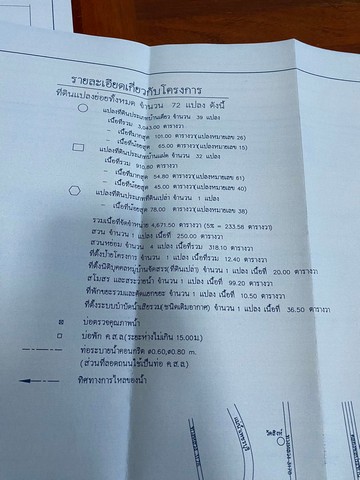 รายละเอียดเกี่ยวกับโครงการ
ที่ดินแปลงย่อยทั้งหมด จำนวน 72 แปลง ดังนี้
แปลงที่ดินประเภทบ้านเดี่ยว จำนวน 39 แปลง
เนื้อที่รวม 3,043.00 ตารางวา
- เนื้อที่มากสุด 101.00 ตารางวา(แปลงหมายเลข 26)
- เนื้อที่น้อยสุด 65.00 ตารางวา(แปลงหมายเลข 15)
แปลงที่ดินประเภทบ้านแฝด จำนวน 32 แปลง
เนื้อที่รวม ตารางวา
- เนื้อที่มากสุด 54.80 ตารางวา(แปลงหมายเลข 61)
- เนื้อที่น้อยสุด 45.00 ตารางวา(แปลงหมายเลข 40)
แปลงที่ดินประเภทที่ดินเปล่า จำนวน 1 แปลง
- เนื้อที่น้อยสุด 78.00 ตารางวา(แปลงหมายเลข 38)
รวมเนื้อที่จัดจำหน่าย 4,671.50 ตารางวา (5% = 233.58 ตารางวา)
สวน จำนวน 1 แปลง เนื้อที่ 250.00 ตารางวา
สวนหย่อม จำนวน 4 แปลง เนื้อที่รวม 318.10 ตารางวา
ที่ตั้งป้ายโครงการ จำนวน 1 แปลง เนื้อที่รวม 12.40 ตารางวา
ที่ตั้งนิติบุคคลหมู่บ้านจัดสรร(ที่ดินเปล่า) จำนวน 1 แปลง เนื้อที่ 20.00 ตารางวา
สโมสร และสระว่ายน้ำ จำนวน 1 แปลง เนื้อที่ 99.20 ตารางวา
ที่พักขยะรวมและคัดแยกขยะ จำนวน 1 แปลง เนื้อที่ 10.50 ตารางวา
ที่ตั้งระบบบำบัดน้ำเสียรวม(ชนิดเติมอากาศ) จำนวน 1 แปลง เนื้อที่ 36.50 ตารางวา
บ่อตรวจคุณภาพน้ำ
บ่อพัก ค.ส.ล.(ระยะห่างไม่เกิน 15.00ม.)
ท่อระบายน้ำคอนกรีต ø0.60,ø0.80 ม.
(ส่วนที่ลอดถนนใช้เป็นท่อ ค.ส.ล.)
ทิศทางการไหลของน้ำ